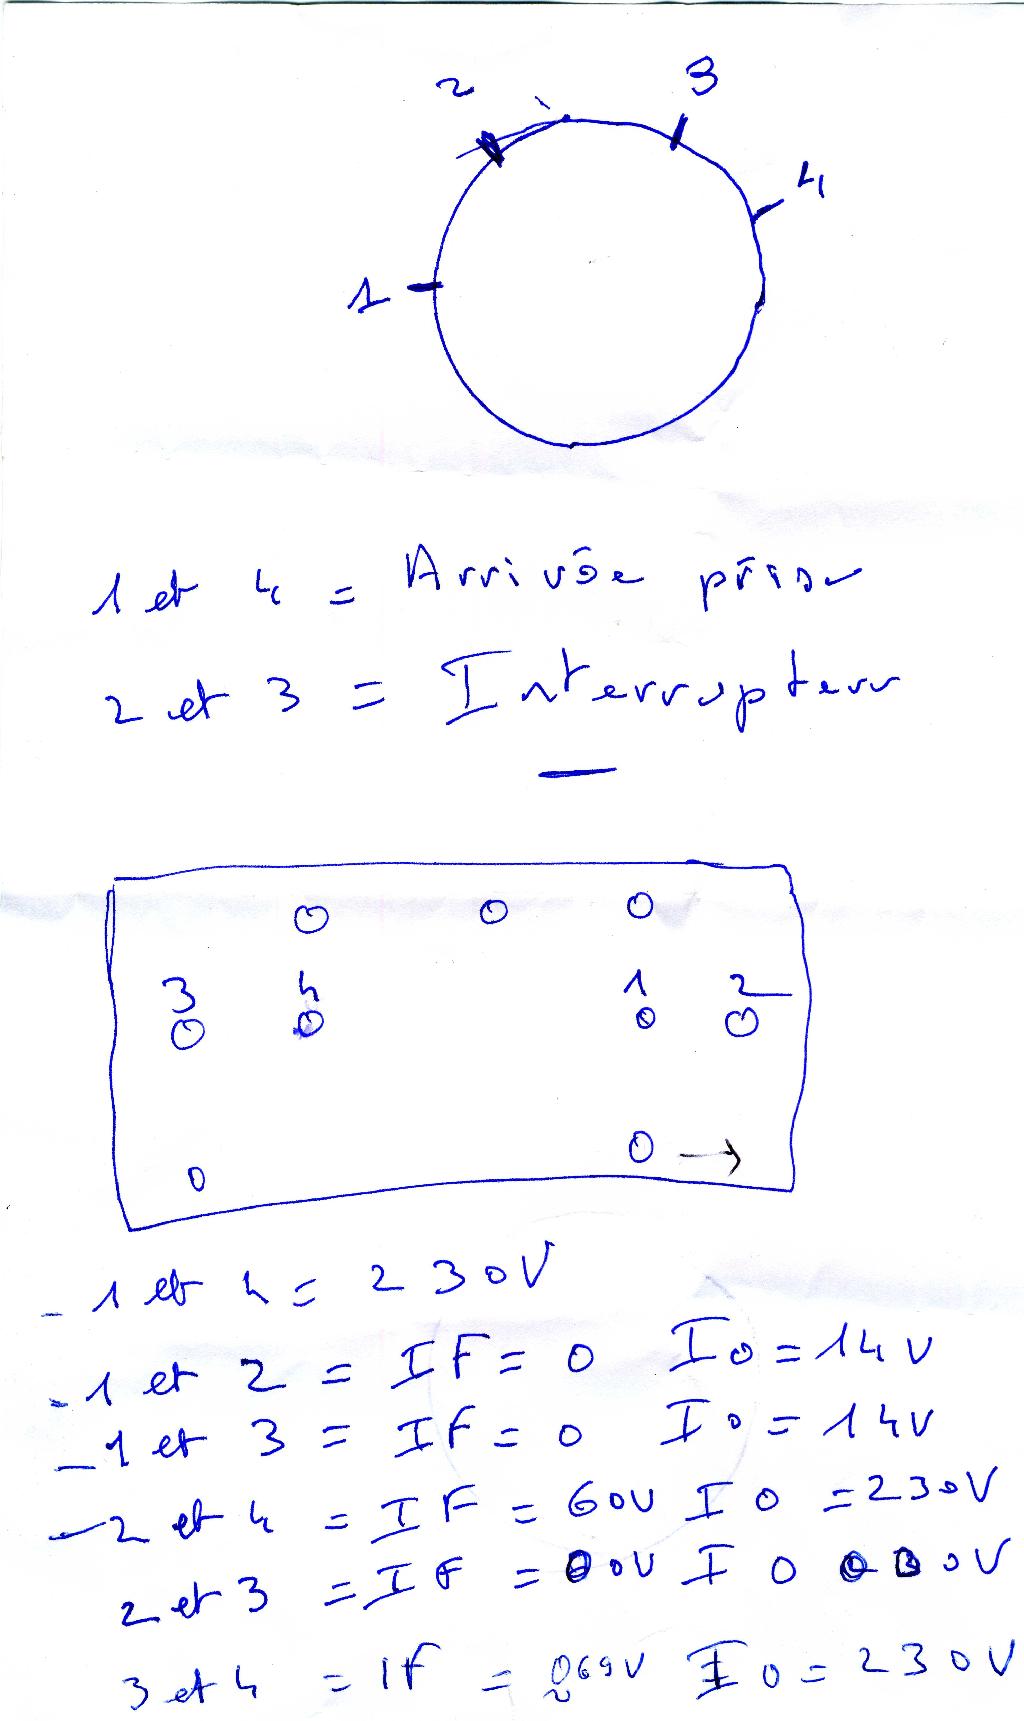 2 3
4
1
1 et 4 = Arrivée prise
2 et 3 = Interrupteur
3 4 1 2
- 1 et 4 = 230V
- 1 et 2 = IF = 0 IO = 14V
- 1 et 3 = IF = 0 IO = 14V
- 2 et 4 = IF = 60V IO = 230V
2 et 3 = IF = 00V IO 00V
3 et 4 = IF = V IO = 230V